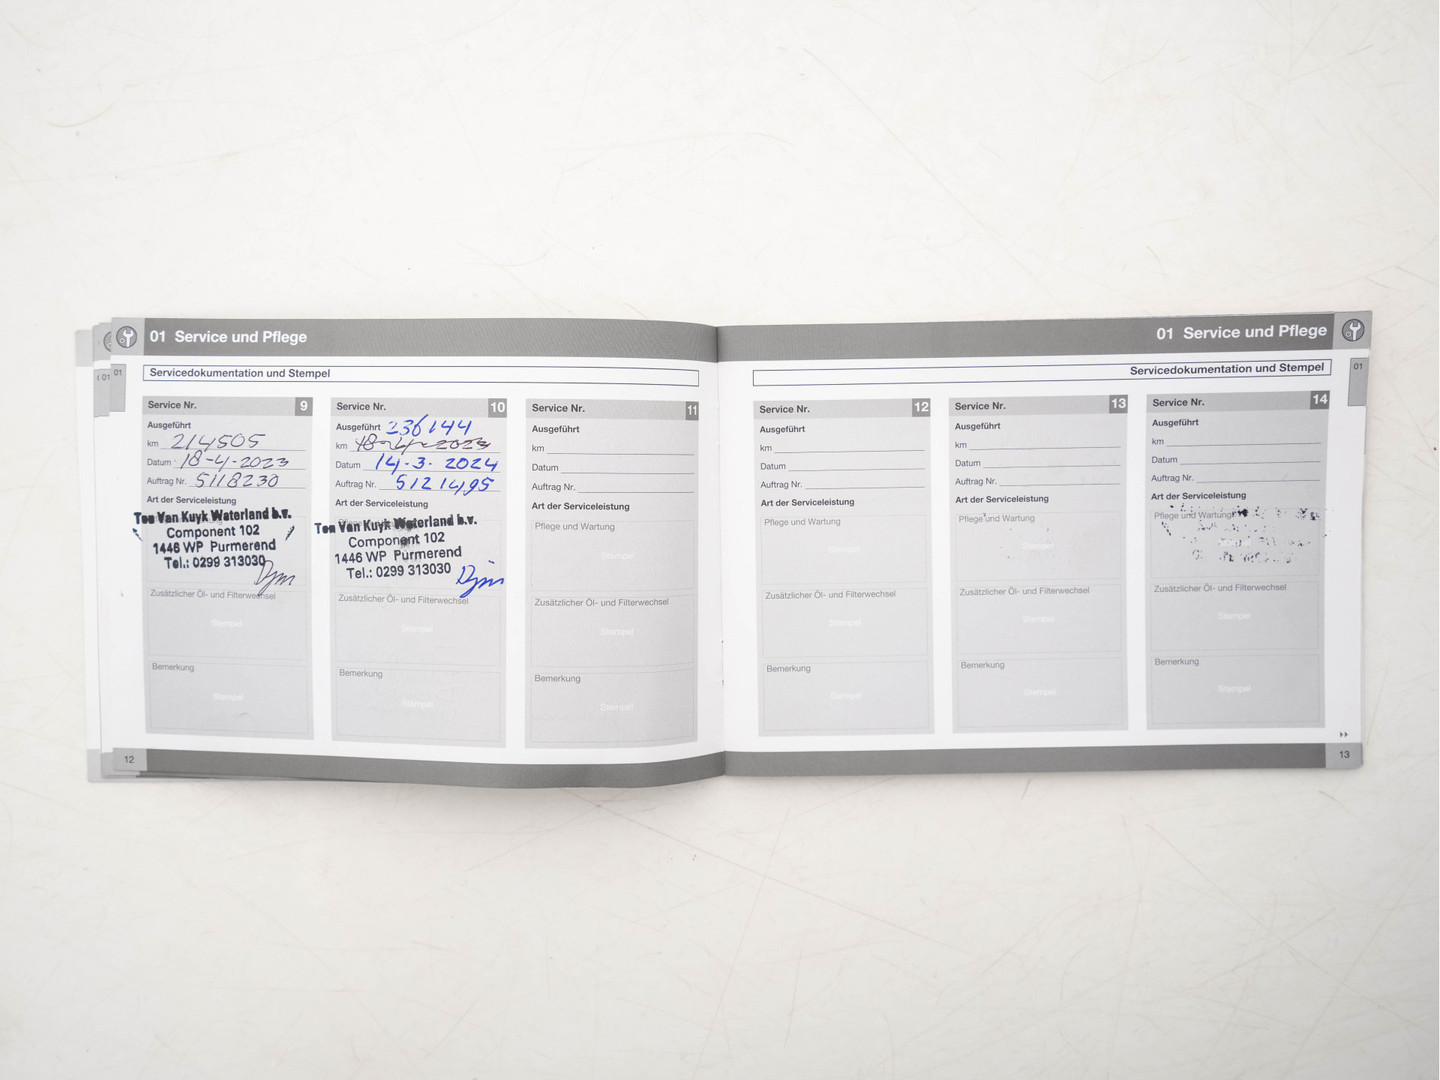 01 Service und Pflege
Servicedokumentation und Stempel
01
01
Service Nr. 9
Ausgeführt
km 214505
Datum 18-4-2023
Auftrag Nr. 5118230
Art der Serviceleistung
Ton Van Kuyk Waterland b.v.
Component 102
1446 WP Purmerend
Tel.: 0299 313030
Zusätzlicher Öl- und Filterwechsel
Stempel
Bemerkung
Stempel
Service Nr. 10
Ausgeführt 236144
km 18-4-2023
Datum 14-3-2024
Auftrag Nr. 5121495
Art der Serviceleistung
Ton Van Kuyk Waterland b.v.
Component 102
1446 WP Purmerend
Tel.: 0299 313030
Zusätzlicher Öl- und Filterwechsel
Stempel
Bemerkung
Stempel
Service Nr. 11
Ausgeführt
km
Datum
Auftrag Nr.
Art der Serviceleistung
Pflege und Wartung
Stempel
Zusätzlicher Öl- und Filterwechsel
Stempel
Bemerkung
Stempel
12
01 Service und Pflege
Servicedokumentation und Stempel
01
Service Nr. 12
Ausgeführt
km
Datum
Auftrag Nr.
Art der Serviceleistung
Pflege und Wartung
Stempel
Zusätzlicher Öl- und Filterwechsel
Stempel
Bemerkung
Stempel
Service Nr. 13
Ausgeführt
km
Datum
Auftrag Nr.
Art der Serviceleistung
Pflege und Wartung
Stempel
Zusätzlicher Öl- und Filterwechsel
Stempel
Bemerkung
Stempel
Service Nr. 14
Ausgeführt
km
Datum
Auftrag Nr.
Art der Serviceleistung
Pflege und Wartung
Zusätzlicher Öl- und Filterwechsel
Stempel
Bemerkung
Stempel
13